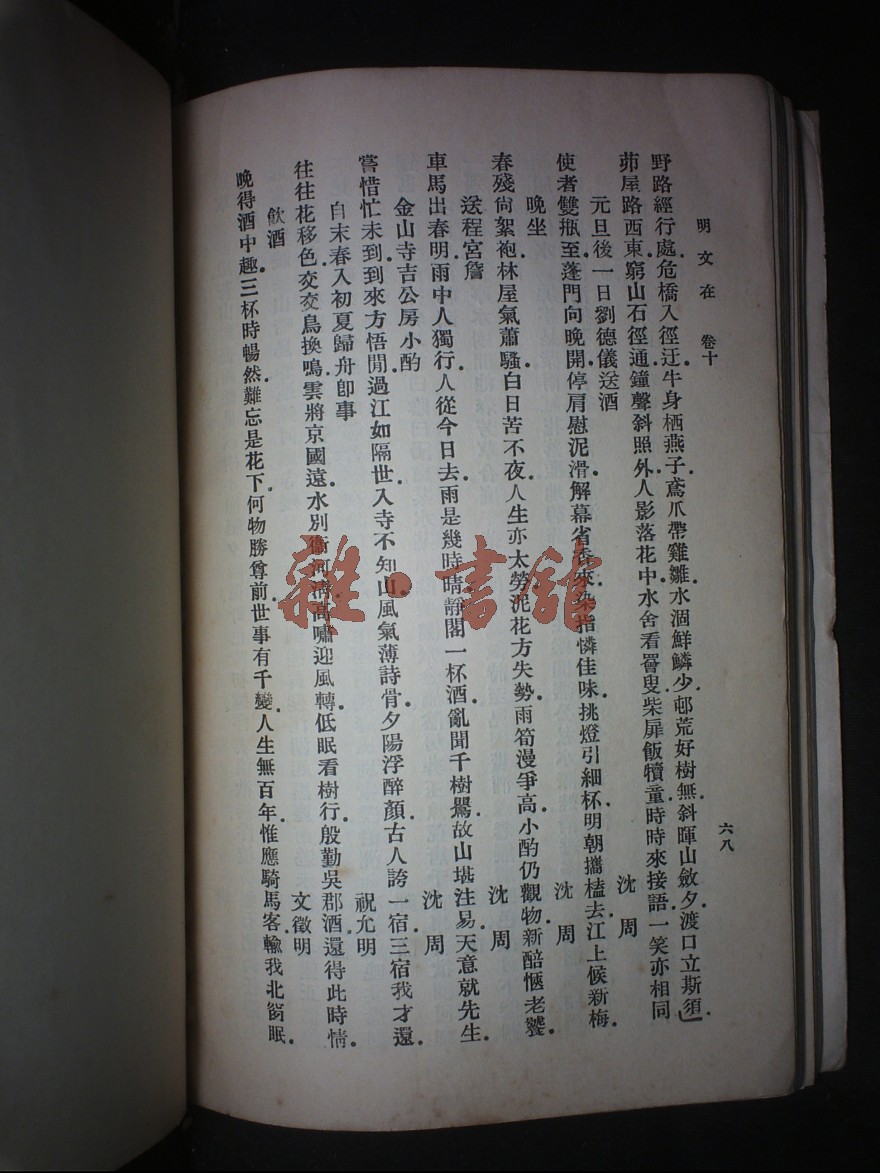 明文在 卷十
六八
野路經行處危橋入徑迂牛身栖燕子鳶爪帶雞雛水涸鮮鱗少邨荒好樹無斜暉山斂夕渡口立斯須」
茆屋路西東窮山石徑通鐘聲斜照外人影落花中水舍看罾叟柴扉飯犢童時時來接語一笑亦相同
元旦後一日劉德儀送酒 沈周
使者雙瓶至蓬門向晚開停肩慰泥滑解幕省香來染指憐佳味挑燈引細杯明朝攜榼去江上候新梅
晚坐 沈周
春殘尙絮袍林屋氣蕭騷白日苦不夜人生亦太勞泥花方失勢雨筍漫爭高小酌仍觀物新醅愜老饕
送程宮詹 沈周
車馬出春明雨中人獨行人從今日去雨是幾時晴靜閣一杯酒亂聞千樹鶯故山堪注易天意就先生
金山寺吉公房小酌 沈周
嘗惜忙未到到來方悟閒過江如隔世入寺不知山風氣薄詩骨夕陽浮醉顏古人誇一宿三宿我才還
自末春入初夏歸舟卽事 祝允明
往往花移色交交鳥換鳴雲將京國遠水別衞河淸高嘯迎風轉低眠看樹行殷勤吳郡酒還得此時情
飮酒 文徵明
晚得酒中趣三杯時暢然難忘是花下何物勝尊前世事有千變人生無百年惟應騎馬客輸我北窗眠
雜·書館